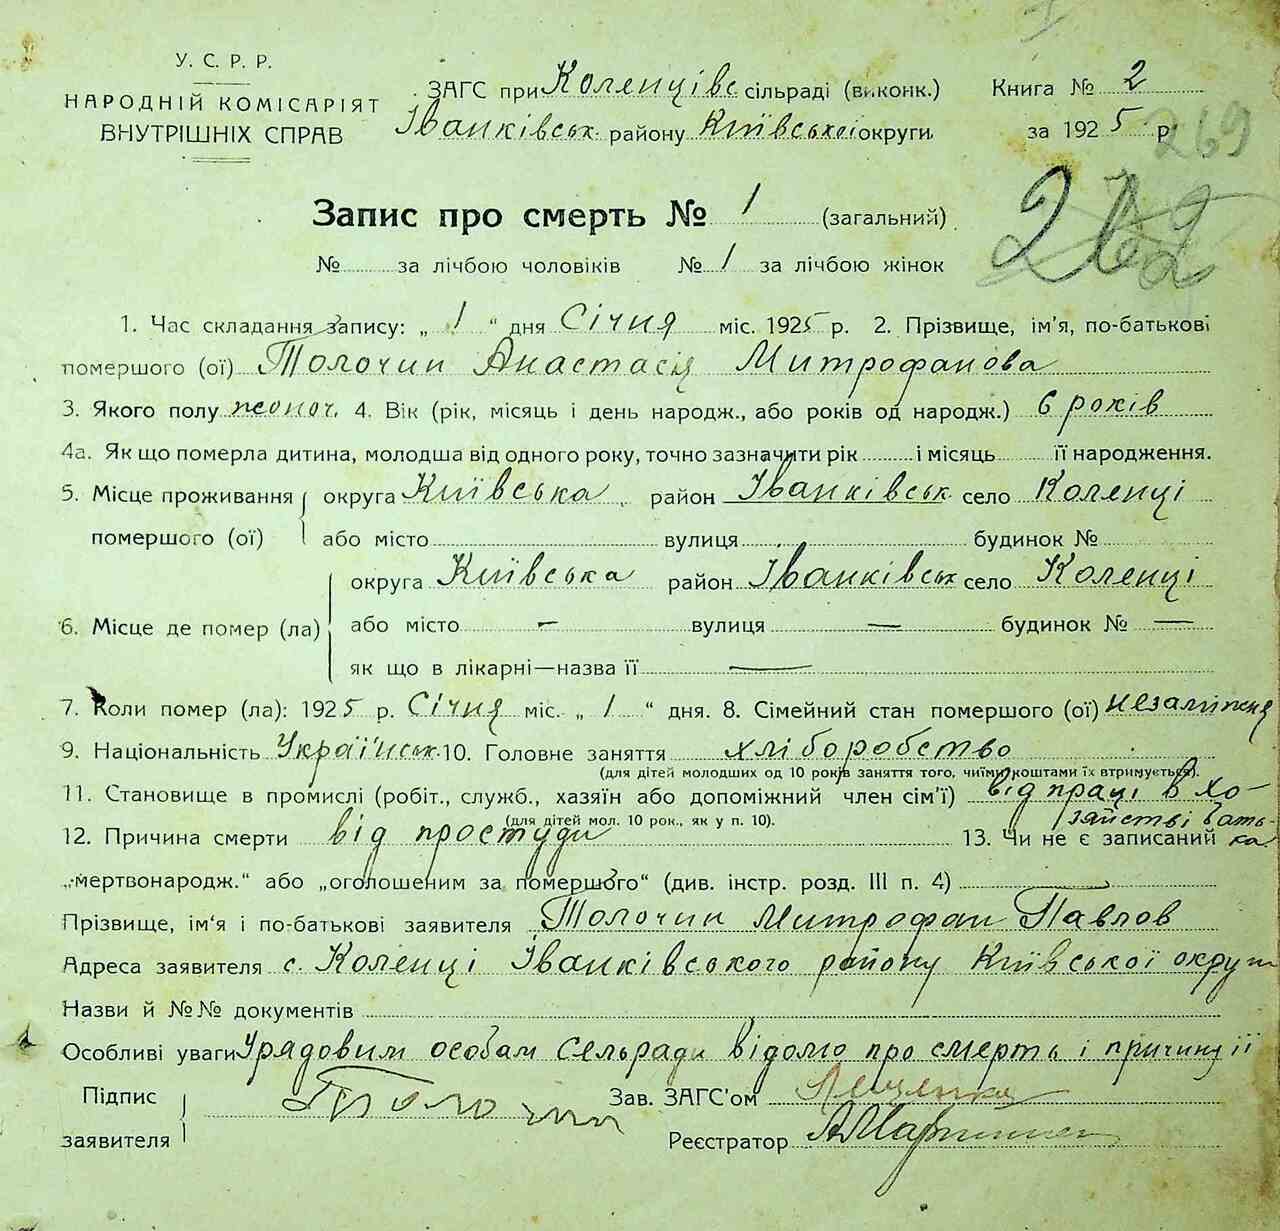 У. С. Р. Р.
НАРОДНІЙ КОМІСАРІЯТ
ВНУТРІШНІХ СПРАВ
ЗАГС при Коленцівс сільраді (виконк.)
Іванківськ. району Київської округи,
Книга № 2
за 1925 р.
269
Запис про смерть № 1 (загальний)
№ за лічбою чоловіків № 1 за лічбою жінок
1. Час складання запису: „ 1 “ дня Січня міс. 1925 р. 2. Прізвище, ім'я, по-батькові
помершого (ої) Толочин Анастасія Митрофанова
3. Якого полу жоноч. 4. Вік (рік, місяць і день народж., або років од народж.) 6 років
4а. Як що померла дитина, молодша від одного року, точно зазначити рік і місяць її народження.
5. Місце проживання помершого (ої) округа Київська район Іванківськ село Коленці
або місто вулиця будинок №
6. Місце де помер (ла) округа Київська район Іванківськ село Коленці
або місто — вулиця — будинок № —
як що в лікарні—назва її —
7. Коли помер (ла): 1925 р. Січня міс. „ 1 “ дня. 8. Сімейний стан помершого (ої)
9. Національність Українськ. 10. Головне заняття хліборобство
(для дітей молодших од 10 років заняття того, чиїми коштами їх втримується).
11. Становище в промислі (робіт., служб., хазяїн або допоміжний член сім'ї) від праці в хо-
зяйстві бать-
ка
(для дітей мол. 10 рок., як у п. 10).
12. Причина смерти від простуди 13. Чи не є записаний
„мертвонародж.“ або „оголошеним за помершого“ (див. інстр. розд. III п. 4) —
Прізвище, ім'я і по-батькові заявителя Толочин Митрофан Павлов
Адреса заявителя с. Коленці Іванківського району Київської округи
Назви й №№ документів
Особливі уваги Урядовим особам сельради відомо про смерть і причину її
Підпис заявителя Толочин Зав. ЗАГС'ом
Реєстратор